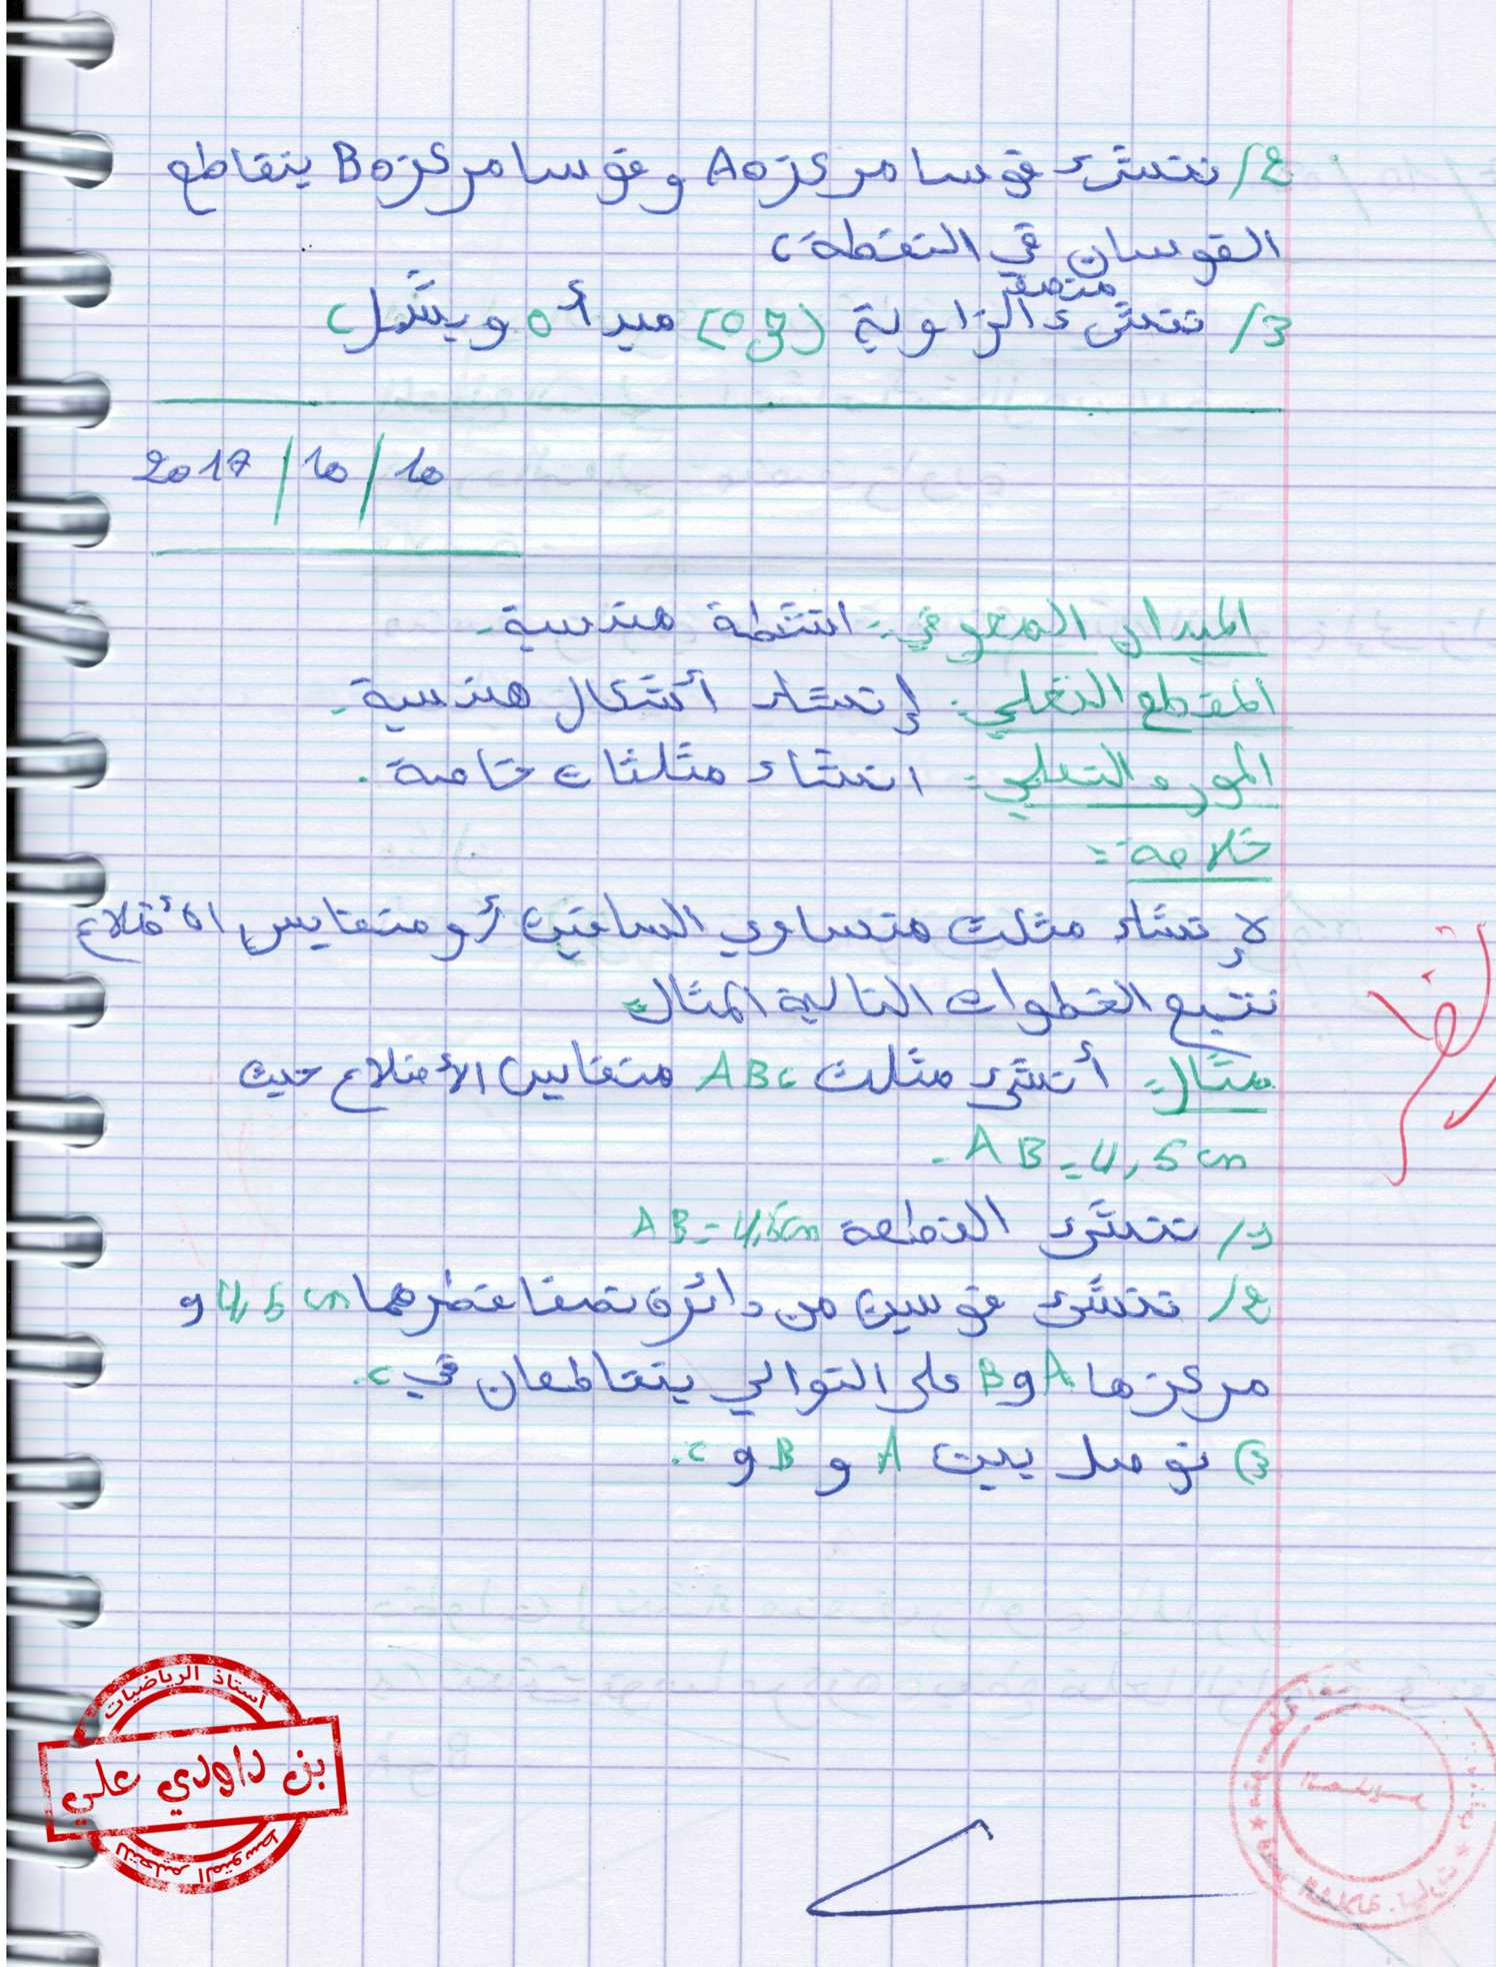 2/ ننشئ قوسا مركزه A و قوسا مركزه B يتقاطع
القوسان في النقطة C
منصف
3/ ننشئ الزاوية مبدأ O ويشمل C
2017/10/10
الميدان المعرفي: انشطة هندسية.
المقطع التعلمي: إنشاء أشكال هندسية.
المورد التعلمي: انشاء مثلثات خاصة.
خلاصة:
لإنشاء مثلث متساوي الساقين أو متقايس الأضلاع
نتبع الخطوات التالية المثال:
مثال: أنشئ مثلث ABC متقايس الأضلاع حيث
AB = 4,5 cm.
1/ ننشئ القطعة AB = 4,5cm
2/ ننشئ قوسين من دائرة نصفا قطرهما 4,5 cm و
مركزها A و B على التوالي يتقاطعان في C.
3) نوصل بين A و B و C.
أستاذ الرياضيات
بن داودي علي
للتعليم المتوسط